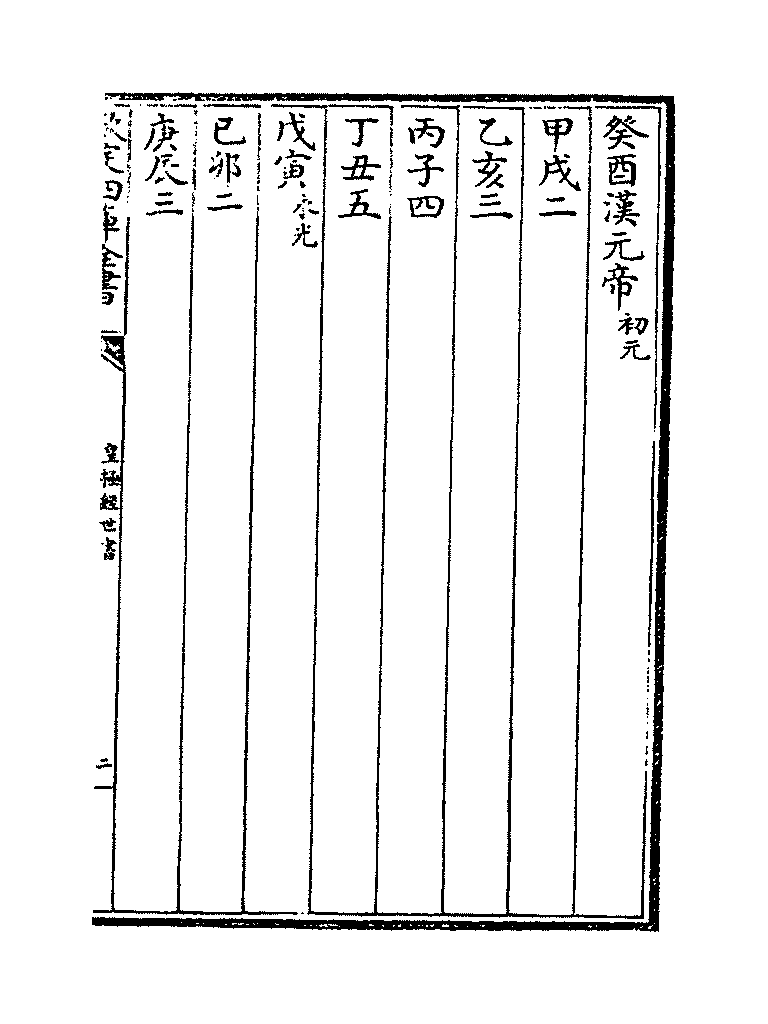 癸酉漢元帝初元
甲戌二
乙亥三
丙子四
丁丑五
戊寅永光
己卯二
庚辰三
欽定四庫全書
皇極經世書
二